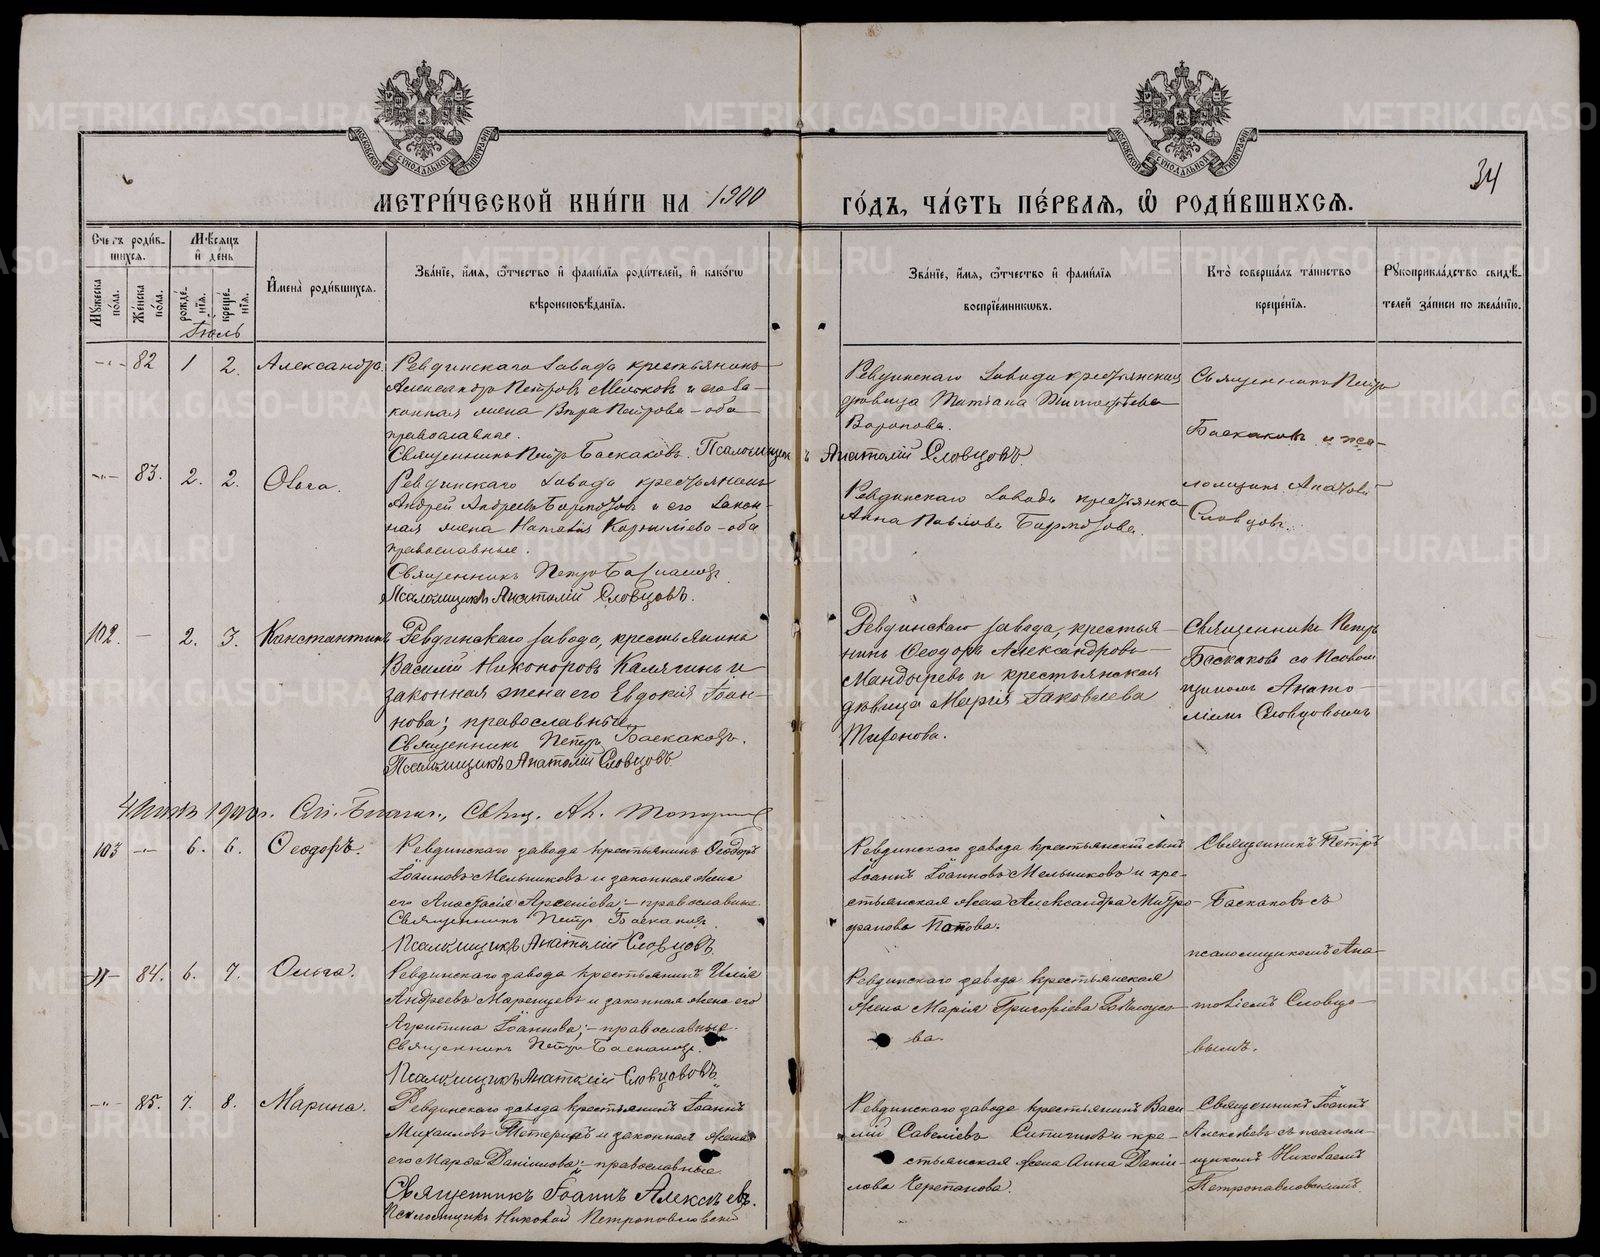 МЕТРИ́ЧЕСКОЙ КНИ́ГИ НА 1900
ГО́ДЪ, ЧА́СТЬ ПЕ́РВАѦ, Ѽ РОДИ́ВШИХСѦ.
34
Счетъ роди́в-
шихсѧ.
Мѣ́сѧцъ
и҆ де́нь
Мꙋжеска по́ла.
Же́нска по́ла.
рожде́-
нїѧ.
креще́-
нїѧ.
Іюль
И҆мена̀ роди́вшихсѧ.
Зва́нїе, и҆́мѧ, ѻ҆́тчество и҆ фами́лїѧ роди́телей, и҆ како́гѡ
вѣроисповѣ́данїѧ.
Зва́нїе, и҆́мѧ, ѻ҆́тчество и҆ фами́лїѧ
воспрїе́мникωвъ.
Кто̀ соверша́лъ та́инство
креще́нїѧ.
Рꙋкоприкла́дство свидѣ́-
телей за́писи по жела́нїю.
82 1 2. Александра.
Ревдинскаго завода крестьянинъ
Александръ Петровъ и его за-
конная жена Вѣра Петрова - оба
православные.
Священникъ Петръ Баскаковъ. Псаломщикъ Анатолій Словцовъ
Ревдинскаго завода крестьянская
дѣвица Татіана Тимофѣева
Воронова.
Священникъ Петръ
Баскаковъ и пса-
ломщикъ Анатолій
Словцовъ.
83. 2. 2. Ольга.
Ревдинскаго завода крестьянинъ
Андрей Андреевъ и его закон-
ная жена Наталія Корниліева - оба
православные.
Священникъ Петръ Баскаковъ
Псаломщикъ Анатолій Словцовъ.
Ревдинскаго завода крестьянка
Анна Павлова
102. — 2. 3. Константинъ
Ревдинскаго завода, крестьянинъ
Василій Никоноровъ Калягинъ и
законная жена его Евдокія Іоан-
нова; православные
Священникъ Петръ Баскаковъ.
Псаломщикъ Анатолій Словцовъ
Ревдинскаго завода, крестья-
нинъ Ѳеодоръ Александровъ
Мандыревъ и крестьянская
дѣвица Марія Іаковлева
Тифонова.
Священникъ Петръ
Баскаковъ со Псалом
щикомъ Анато-
ліемъ Словцовымъ
4 1900 г. Свящ.
103 6. 6. Ѳеодоръ.
Ревдинскаго завода крестьянинъ Ѳеодоръ
Іоанновъ Мельниковъ и законная жена
его Анастасія Арсеніева; - православные
Священникъ Петръ Баскаковъ.
Псаломщикъ Анатолій Словцовъ
Ревдинскаго завода крестьянскій сынъ
Іоаннъ Іоанновъ Мельниковъ и кре-
стьянская жена Александра Митро-
фанова Попова.
Священникъ Петръ
Баскаковъ съ
псаломщикомъ Ана-
толіемъ Словцо-
вымъ.
84. 6. 7. Ольга.
Ревдинскаго завода крестьянинъ Илія
Андреевъ Маренцевъ и законная жена его
Агрипина Іоаннова; - православные.
Священникъ Петръ Баскаковъ.
Псаломщикъ Анатолій Словцовъ
Ревдинскаго завода крестьянская
жена Марія Григоріева Бѣлоусо-
ва.
85. 7. 8. Марина.
Ревдинскаго завода крестьянинъ Іоаннъ
Михаиловъ и законная жена
его Марѳа Даніилова; - православные
Священникъ Іоаннъ Алексѣевъ.
Псаломщикъ Николай Петропавловскій
Ревдинскаго завода крестьянинъ Васи
лій Савеліевъ и кре-
стьянская жена Анна Даніи-
лова Черепанова.
Священникъ Іоаннъ
Алексѣевъ съ псалом-
щикомъ Николаемъ
Петропавловскимъ
METRIKI.GASO-URAL.RU